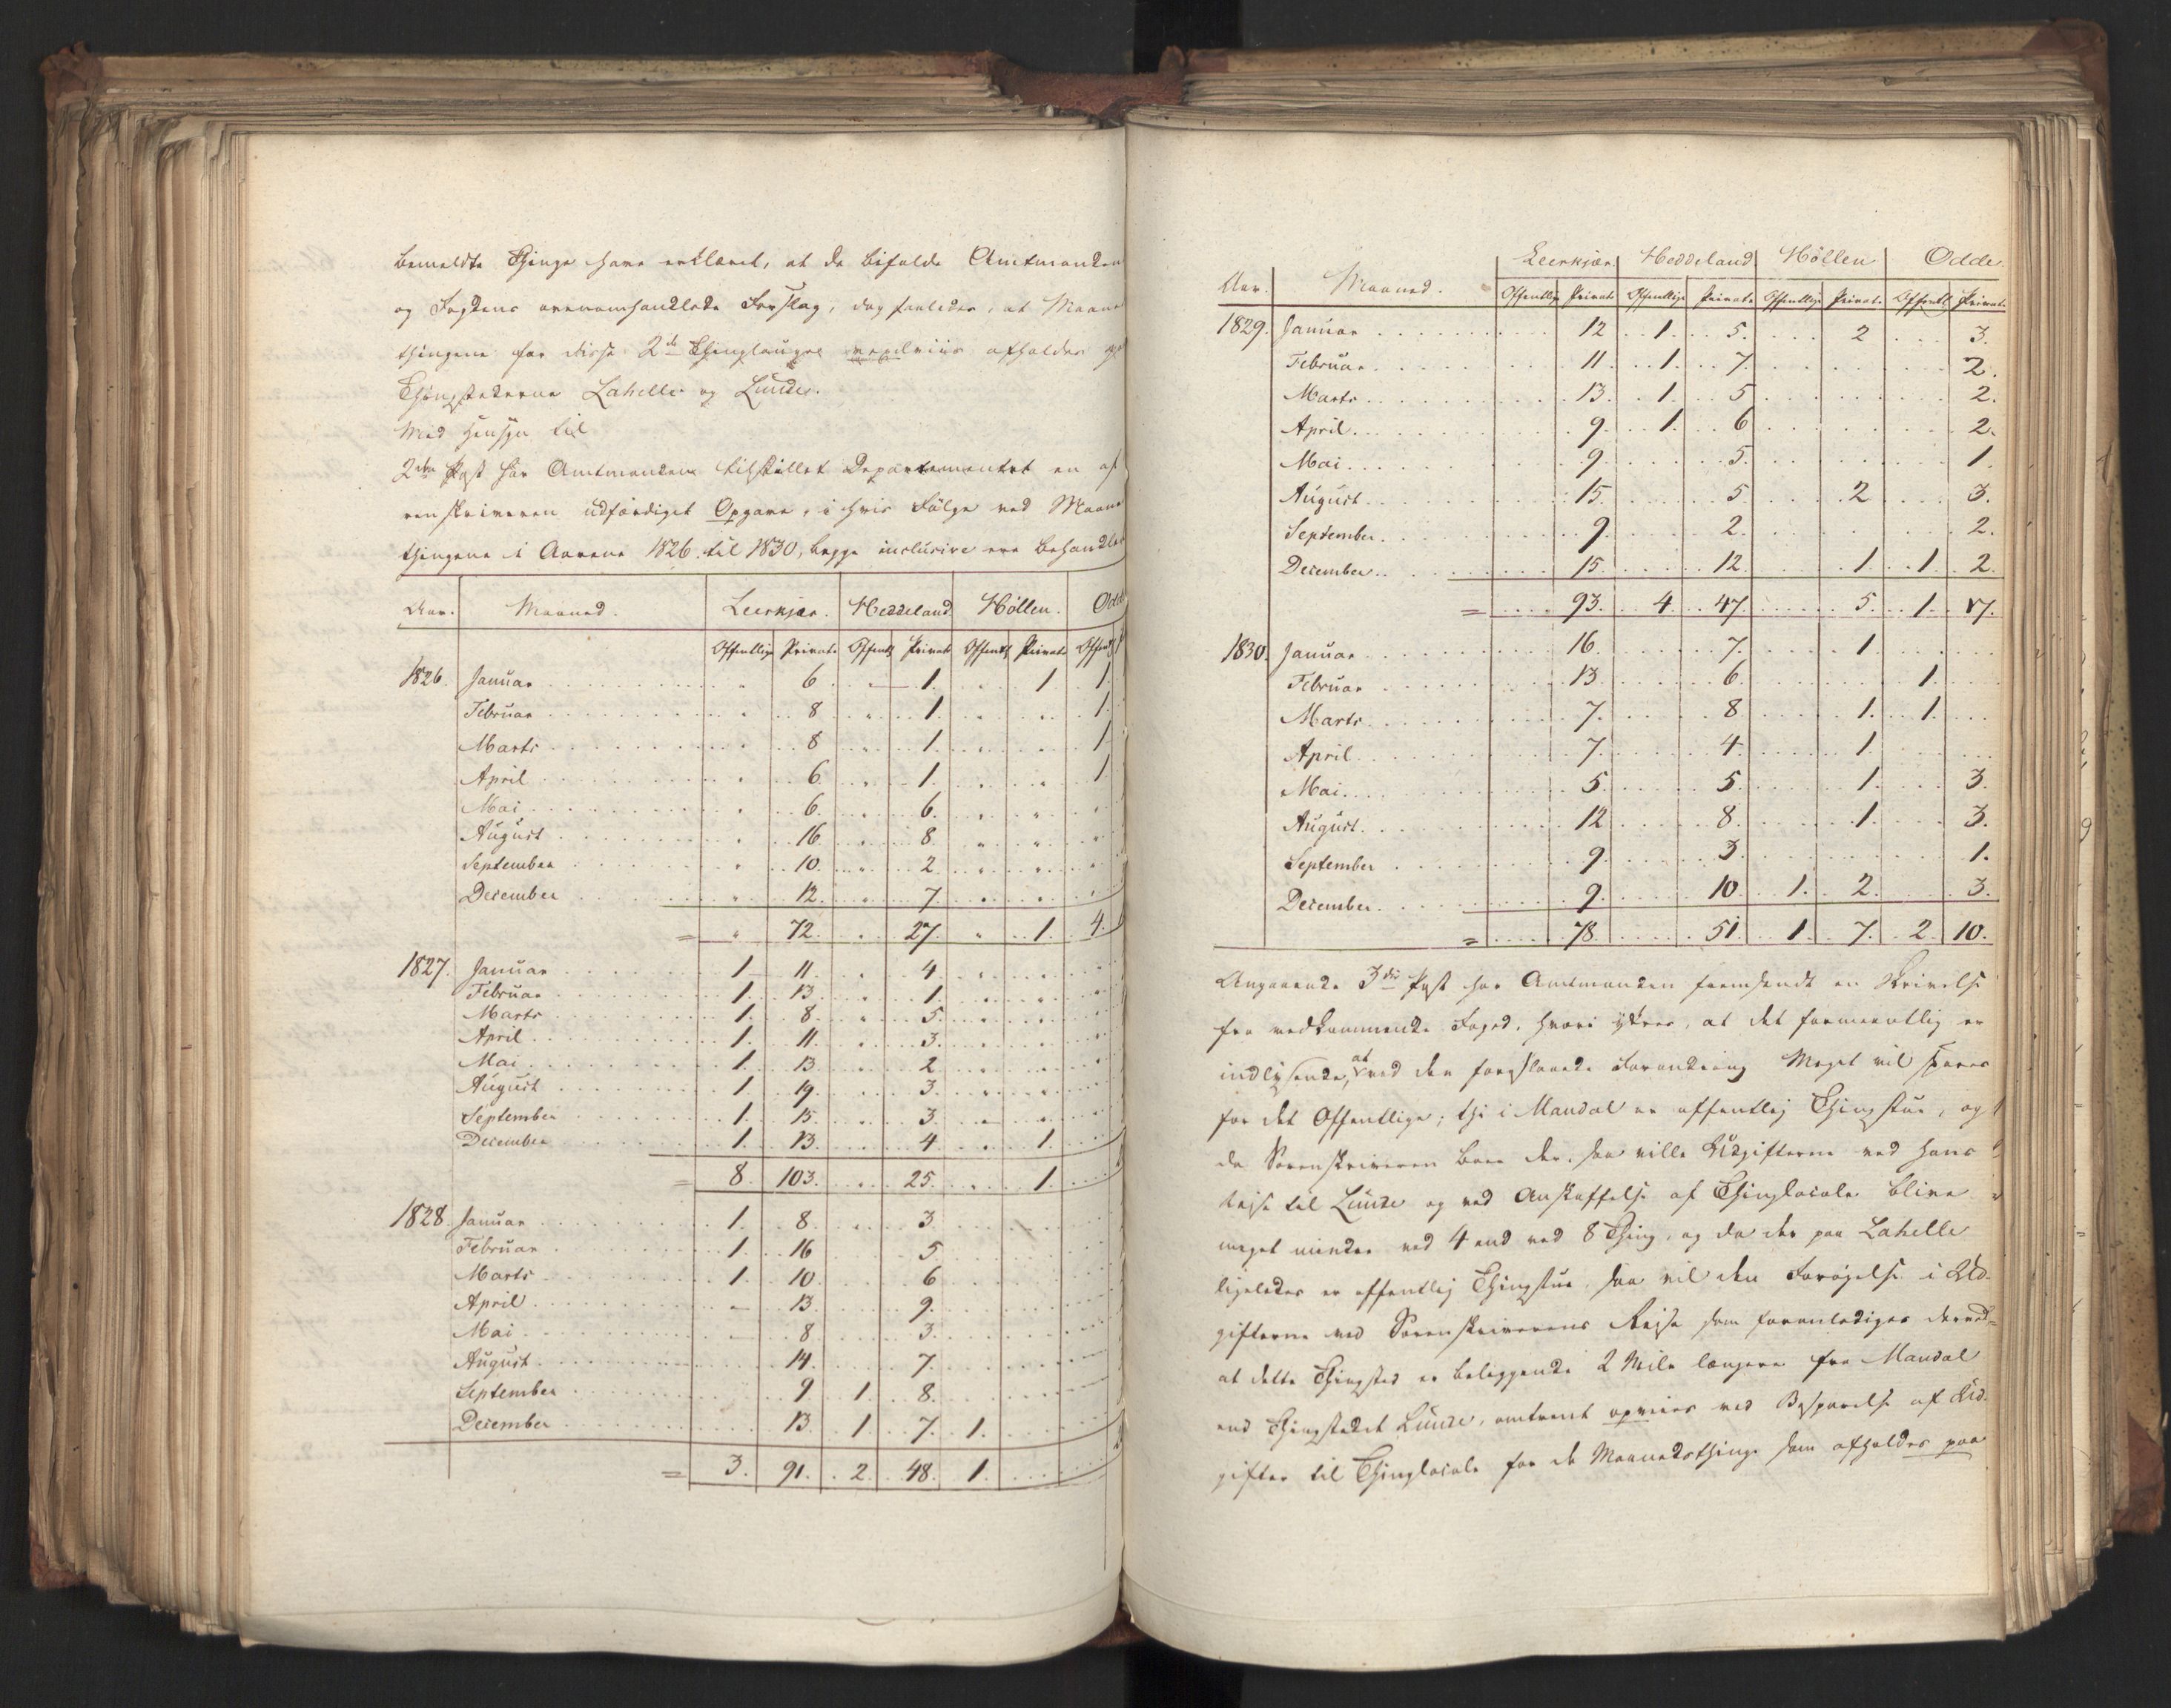 bemeldte Thinge have erklæret, at de bifalde Amtmanden
og Fogdens ovenomhandlede Forslag, dog saaledes, at Maane
thingene for disse 2de Thinglauge vexelviis afholdes
Thingstederne Lahelle og Lunde.
Med Hensyn til
2den Post har Amtmanden tilstillet Departementet en af
renskriveren udfærdiget Opgave, i hvis Følge ved Maane
thingene i Aarene 1826 til 1830, begge inclusive ere behandlet
Aar. Maaned. Leerkjær. Heddeland Höllen. Odde
Offentlige Private Offentl Private Offentl Private Offentl
1826. Januar 6. 1. 1 1.
Februar 8 1. 1.
Marts 8 1. 1
April 6. 1. 1
Mai 6. 6.
August 16 8.
September 10. 2
December 12. 7.
= 72. 27. 1. 4.
1827. Januar 1 11. 4
Februar 1. 13. 1.
Marts 1. 8. 5.
April 1. 11. 3.
Mai 1. 13 2
August 1 19. 3.
September 1. 15. 3.
December 1. 13. 4 1.
= 8. 103. 25. 1.
1828. Januar 1. 8. 3
Februar 1. 16 5
Marts 1. 10. 6
April 13. 9.
Mai 8. 3.
August 14. 7.
September 9 1. 8.
December 13 1. 7. 1.
= 3. 91. 2. 48. 1.
Aar. Maaned. Leerkjær. Heddeland Höllen Odde.
Offentlige Private Offentlige Private Offentlige Private Offentl. Private
1829. Januar 12 1. 5. 2 3.
Februar 11 1. 7. 2.
Marts 13. 1. 5 2.
April 9. 1. 6 2.
Mai 9. 5. 1.
August 15. 5 2 3.
September 9. 2. 2.
December 15. 12. 1. 1. 2.
= 93. 4. 47. 5. 1. 17.
1830. Januar 16. 7. 1.
Februar 13. 6. 1.
Marts 7. 8 1. 1.
April 7. 4. 1
Mai 5. 5. 1. 3.
August 12 8. 1. 3.
September 9. 3. 1.
December 9. 10 1. 2. 3.
= 78. 51. 1 7. 2 10.
Angaaende 3die Post har Amtmanden fremsendt en Skrivelse
fra vedkommende Foged, hvori yttres, at det formeentlig er
indlysende, at ved den foreslaaede Forandring Meget vil spares
for det Offentlige; thi i Mandal er offentlig Thingstue, og
da Sorenskriveren boer der, saa ville Udgifterne ved hans
Reise til Lunde og ved Anskaffelse af Thinglocale blive
meget mindre ved 4 end ved 8 Thing, og da der paa Lahelle
ligeledes er offentlig Thingstue, saa vil den Forøgelse i Ud-
gifterne ved Sorenskriverens Reise som foranlediges derved
at dette Thingsted er beliggende 2 Mile længere fra Mandal
end Thingstedet Lunde, omtrent opveies ved Besparelse af Ud-
gifter til Thinglocale for de Maanedsthinge som afholdes paa